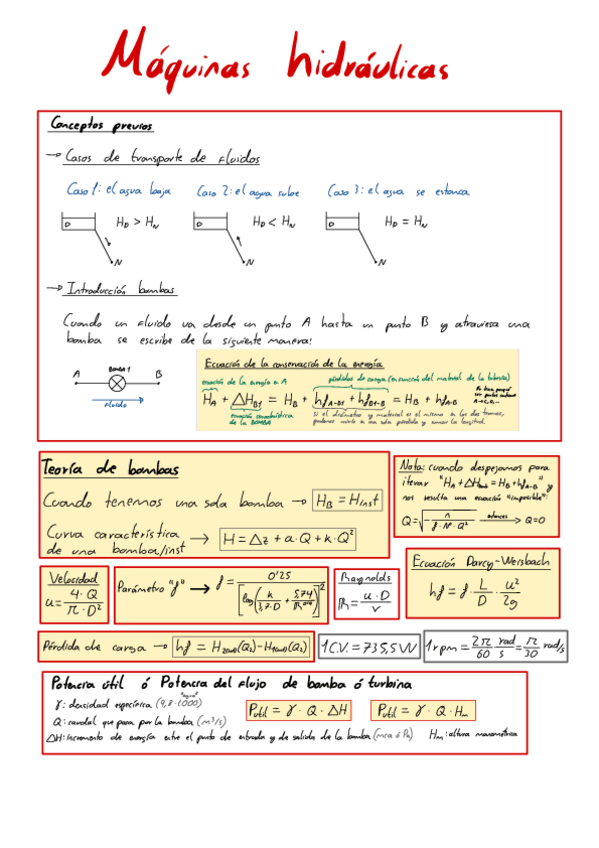 Máquinas hidráulicas
Conceptos previos
→ Casos de transporte de fluidos
Caso 1: el agua baja Caso 2: el agua sube Caso 3: el agua se estanca
D H_D > H_N D H_D < H_N D H_D = H_N
N N N
→ Introducción bombas
Cuando un fluido va desde un punto A hasta un punto B y atraviesa una
bomba se escribe de la siguiente manera:
A BOMBA 1 B
fluido
Ecuación de la conservación de la energía
ecuación de la energía en A pérdidas de carga (en función del material de la tubería)
H_A + ΔH_B1 = H_B + hf_A-B1 + hf_B1-B = H_B + hf_A-B
ecuación característica
de la BOMBA
si el diámetro y material es el mismo en los dos tramos,
podemos unirlo en una sola pérdida y sumar la longitud.
Teoría de bombas
Cuando tenemos una sola bomba → H_B = H_inst
Curva característica
de una bomba/inst → H = Δz + a·Q + k·Q²
Nota: cuando despejamos para
iterar "H_A + ΔH = H_B + hf_A-B" y
nos resulta una ecuación "imposible":
Q = √(- n / f·N·Q²) entonces → Q=0
Ecuación Darcy-Weisbach
hf = f · L/D · u²/2g
Velocidad
u = 4·Q / π·D²
Parámetro "f" → f = 0'25 / [log(k / 3,7·D + 5,74 / ℝ^0,9)]²
Raynolds
ℝ = u·D / ν
Pérdida de carga → hf = H(Q₂) - H(Q₂)
1 C.V. = 735,5 W
1 rpm = 2π/60 rad/s = π/30 rad/s
Potencia útil ó Potencia del flujo de bomba ó turbina
γ: densidad específica (9,8·1000) "agua"
P_útil = γ · Q · ΔH P_útil = γ · Q · H_m
Q: caudal que pasa por la bomba (m³/s)
ΔH: incremento de energía entre el punto de entrada y de salida de la bomba (mca ó Pa) H_m: altura manométrica